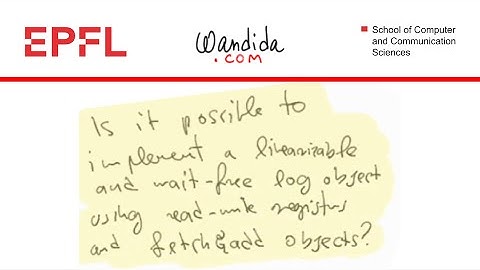 EPFL
Wandida
.COM
School of Computer
and Communication
Sciences
Is it possible to
implement a linearizable
and wait-free log object
using read-write registers
and fetch&add objects?